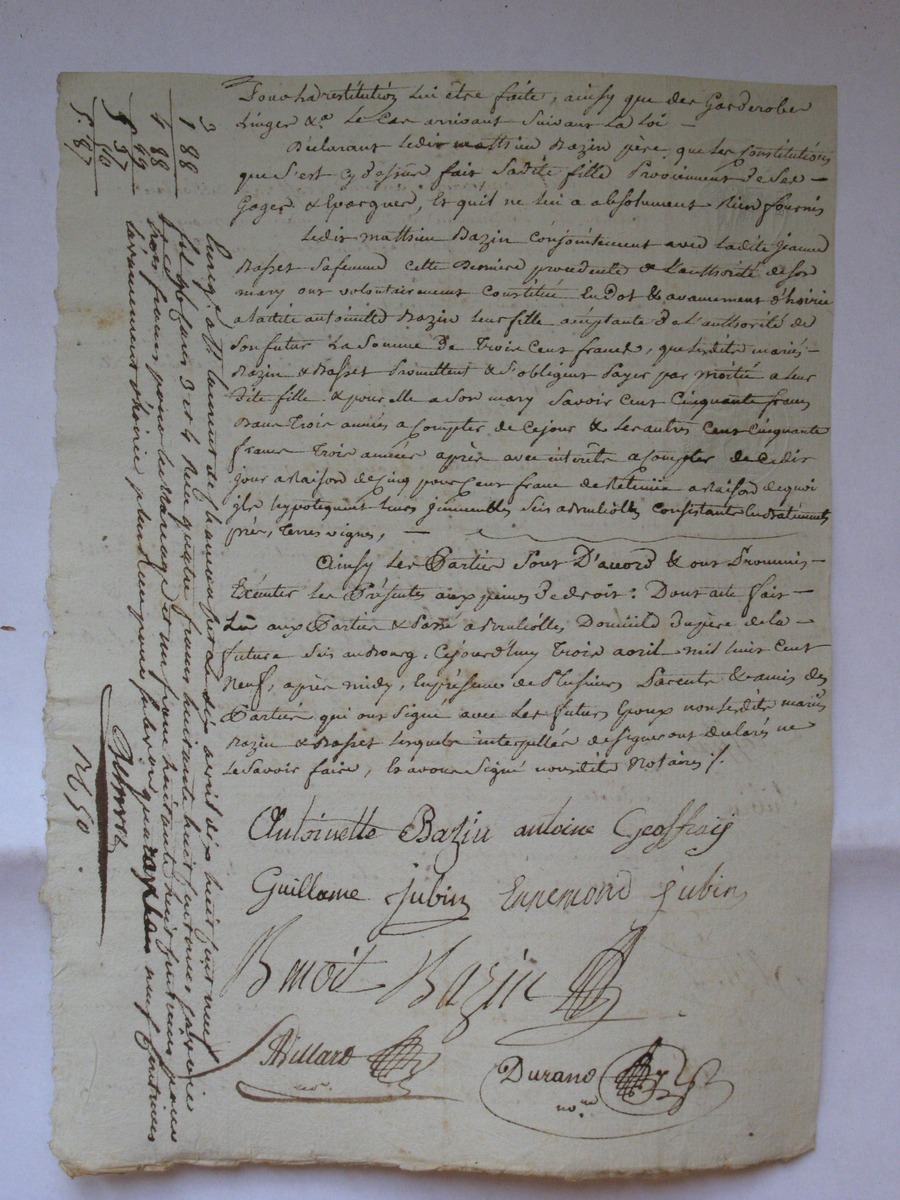 restitution lui être faite, ainsy que des Garderobe
Linger &c. Le Cas arrivant suivant La Loi —
Déclarant Ledit mathieu Bazin père, que Les Constitutions
que s'est cy dessus fait Sadite fille Proviennent de Ses —
Gages & Epargnes, Et quil ne lui a absolument Rien fournis
Ledit mathieu Bazin Conjointement avec Ladite Jeanne
Basset Safemme Cette Derniere procedente de L'authorité de son
mary ont volontairement Constitué En Dot & avancement d'hoirie
a Ladite antoinette Bazin Leur fille acceptante de L'authorité de
Son futur La Somme De Trois Cent francs, que Lesdits mariés —
Bazin & Basset Promettent & S'obligent Payer par moitié a Leur
Dite fille & pour elle a Son mary Savoir Cent Cinquante francs
Dans Trois années a Compter de Cejour & Les autres Cent Cinquante
francs Trois années après avec intérêts a Compter de Cedit
jour a Raison de Cinq pour Cent franc de Retenue a Raison de quoi
ils hypotequent Leurs immeubles Sis a Brulliolles Consistants En Batiments
prés, Terres vignes, —
Ainsy Les Parties Sont D'acord & ont Promis —
Exécuter Les Présentes aux peines de droit : Dont acte fait —
Lu aux Parties & Passé a Brulliolles Domicile du père de la —
future Sis au Bourg, Cejourd'huy Trois avril mil huit Cent
Neuf, après midy, En présence de Plusieurs Parents & amis des
Parties qui ont Signé avec Les futurs Epoux non Lesdits mariés
Bazin & Basset Lesquels interpellés de Signer ont declarés ne
Le Savoir faire, Et avons Signé nousdits Notaires /.
Antoinette Bazin antoine Geoffray
Guillome jubin Ennemond jubin
Benoit Bazin
Durand
no.re
3
1 88
4 88
49
5 37
Enreg. à St Laurent de Chamousset le dix avril dix huit cent neuf
fol 96 cases 3 et 4 Reçu quatre francs huitante huit centimes savoir
trois francs pour le mariage et un franc huitante huit centimes pour
avancement d'hoirie plus reçu pour subvention quarante neuf centimes